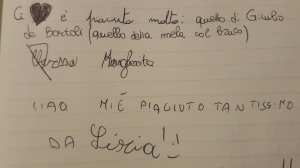 Ci è piaciuto molto: quello di Giulio
de Bortoli (quello della mela col bruco)
Margherita
CIAO MI È PIACIUTO TANTISSIMO
DA Licia!